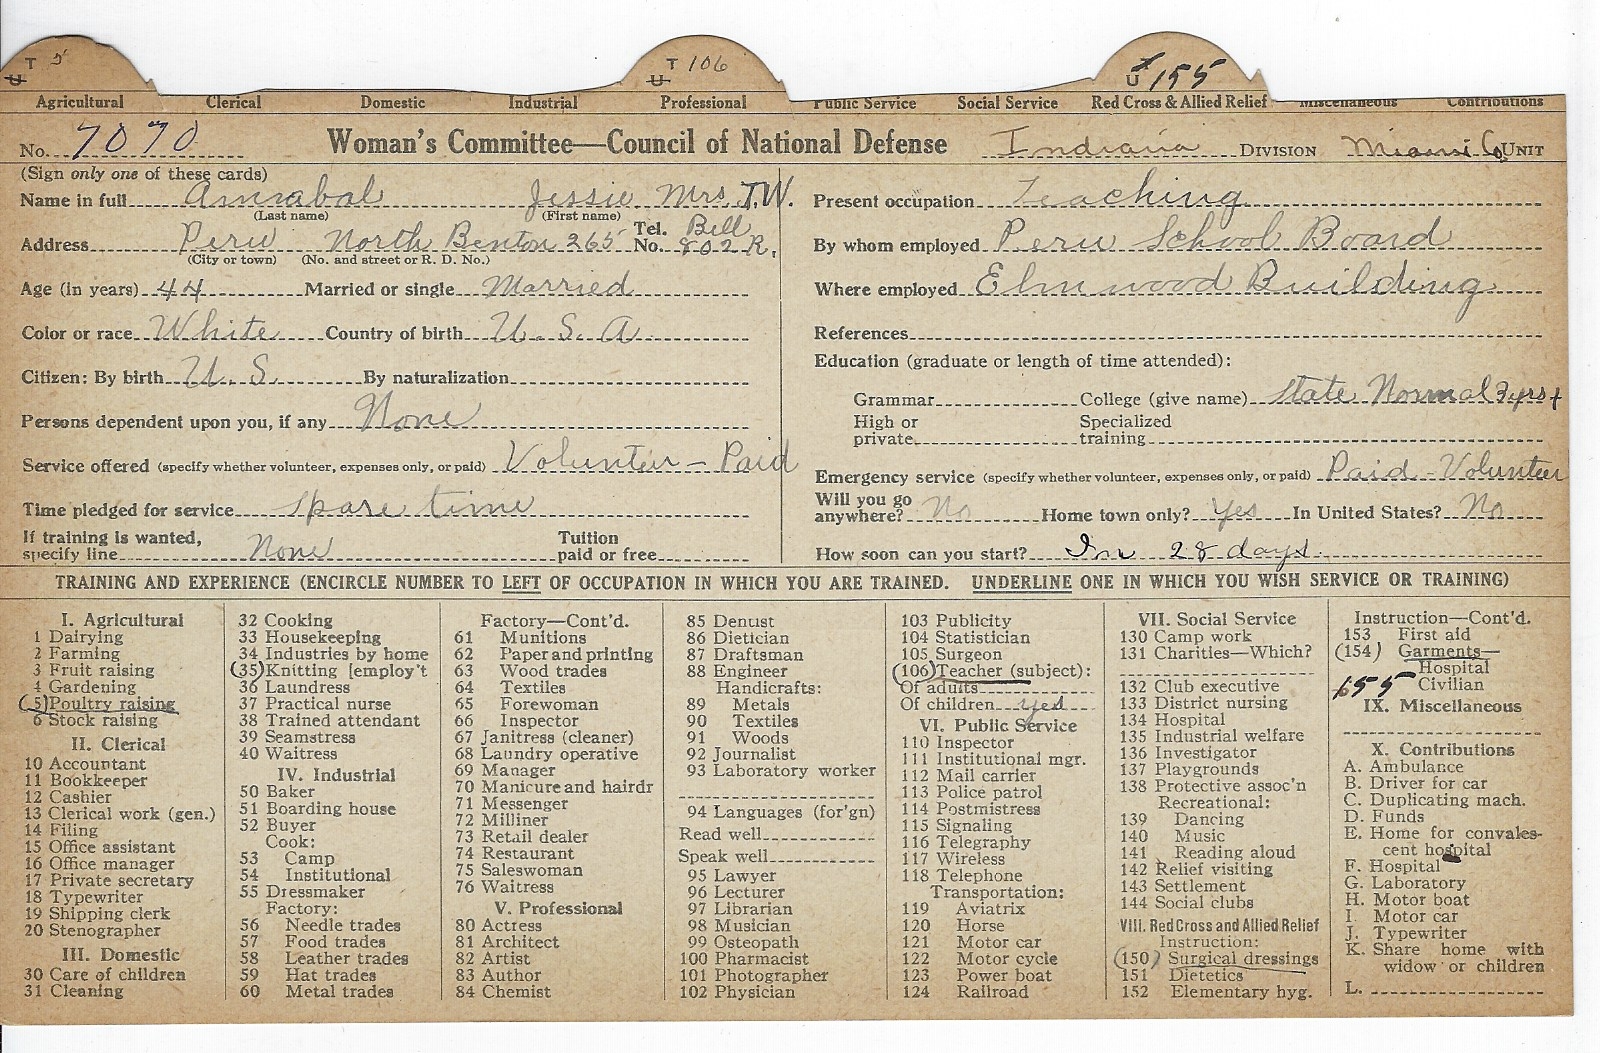 T 5 T 106 U 155
U U
Agricultural Clerical Domestic Industrial Professional Public Service Social Service Red Cross & Allied Relief Miscellaneous Contributions
No. 7070 Woman's Committee—Council of National Defense Indiana DIVISION Miami Co. UNIT
(Sign only one of these cards)
Name in full Annabal Jessie Mrs. T.W.
(Last name) (First name)
Address Peru North Benton 265 Tel. No. Bell 802 R.
(City or town) (No. and street or R. D. No.)
Age (in years) 44 Married or single Married
Color or race White Country of birth U.S.A.
Citizen: By birth U.S. By naturalization
Persons dependent upon you, if any None
Service offered (specify whether volunteer, expenses only, or paid) Volunteer - Paid
Time pledged for service spare time
If training is wanted, specify line None Tuition paid or free
Present occupation Teaching
By whom employed Peru School Board
Where employed Elmwood Building
References
Education (graduate or length of time attended):
Grammar College (give name) State Normal 3 yrs +
High or private Specialized training
Emergency service (specify whether volunteer, expenses only, or paid) Paid - Volunteer
Will you go anywhere? No Home town only? Yes In United States? No
How soon can you start? In 28 days.
TRAINING AND EXPERIENCE (ENCIRCLE NUMBER TO LEFT OF OCCUPATION IN WHICH YOU ARE TRAINED. UNDERLINE ONE IN WHICH YOU WISH SERVICE OR TRAINING)
I. Agricultural
1 Dairying
2 Farming
3 Fruit raising
4 Gardening
(5) Poultry raising
6 Stock raising
II. Clerical
10 Accountant
11 Bookkeeper
12 Cashier
13 Clerical work (gen.)
14 Filing
15 Office assistant
16 Office manager
17 Private secretary
18 Typewriter
19 Shipping clerk
20 Stenographer
III. Domestic
30 Care of children
31 Cleaning
32 Cooking
33 Housekeeping
34 Industries by home
(35) Knitting [employ't
36 Laundress
37 Practical nurse
38 Trained attendant
39 Seamstress
40 Waitress
IV. Industrial
50 Baker
51 Boarding house
52 Buyer
Cook:
53 Camp
54 Institutional
55 Dressmaker
Factory:
56 Needle trades
57 Food trades
58 Leather trades
59 Hat trades
60 Metal trades
Factory—Cont'd.
61 Munitions
62 Paper and printing
63 Wood trades
64 Textiles
65 Forewoman
66 Inspector
67 Janitress (cleaner)
68 Laundry operative
69 Manager
70 Manicure and hairdr
71 Messenger
72 Milliner
73 Retail dealer
74 Restaurant
75 Saleswoman
76 Waitress
V. Professional
80 Actress
81 Architect
82 Artist
83 Author
84 Chemist
85 Dentist
86 Dietician
87 Draftsman
88 Engineer
Handicrafts:
89 Metals
90 Textiles
91 Woods
92 Journalist
93 Laboratory worker
94 Languages (for'gn)
Read well
Speak well
95 Lawyer
96 Lecturer
97 Librarian
98 Musician
99 Osteopath
100 Pharmacist
101 Photographer
102 Physician
103 Publicity
104 Statistician
105 Surgeon
(106) Teacher (subject):
Of adults
Of children yes
VI. Public Service
110 Inspector
111 Institutional mgr.
112 Mail carrier
113 Police patrol
114 Postmistress
115 Signaling
116 Telegraphy
117 Wireless
118 Telephone
Transportation:
119 Aviatrix
120 Horse
121 Motor car
122 Motor cycle
123 Power boat
124 Railroad
VII. Social Service
130 Camp work
131 Charities—Which?
132 Club executive
133 District nursing
134 Hospital
135 Industrial welfare
136 Investigator
137 Playgrounds
138 Protective assoc'n
Recreational:
139 Dancing
140 Music
141 Reading aloud
142 Relief visiting
143 Settlement
144 Social clubs
VIII. Red Cross and Allied Relief
Instruction:
(150) Surgical dressings
151 Dietetics
152 Elementary hyg.
Instruction—Cont'd.
153 First aid
(154) Garments—
Hospital
155 Civilian
IX. Miscellaneous
X. Contributions
A. Ambulance
B. Driver for car
C. Duplicating mach.
D. Funds
E. Home for convales-
cent hospital
F. Hospital
G. Laboratory
H. Motor boat
I. Motor car
J. Typewriter
K. Share home with
widow or children
L.